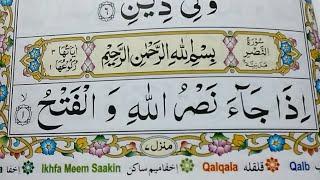 وَلِيَ دِيْنِ ۶
سُوْرَةُ النَّصْرِ
بِسْمِ اللّٰهِ الرَّحْمٰنِ الرَّحِيْمِ
اٰيَاتُهَا ٣
رُكُوْعُهَا ١
اِذَا جَآءَ نَصْرُ اللّٰهِ وَ الْفَتْحُ ۙ ١
منزل ٧
Ikhfa Meem Saakin اخفا میم ساکن Qalqala قلقلہ Qalb